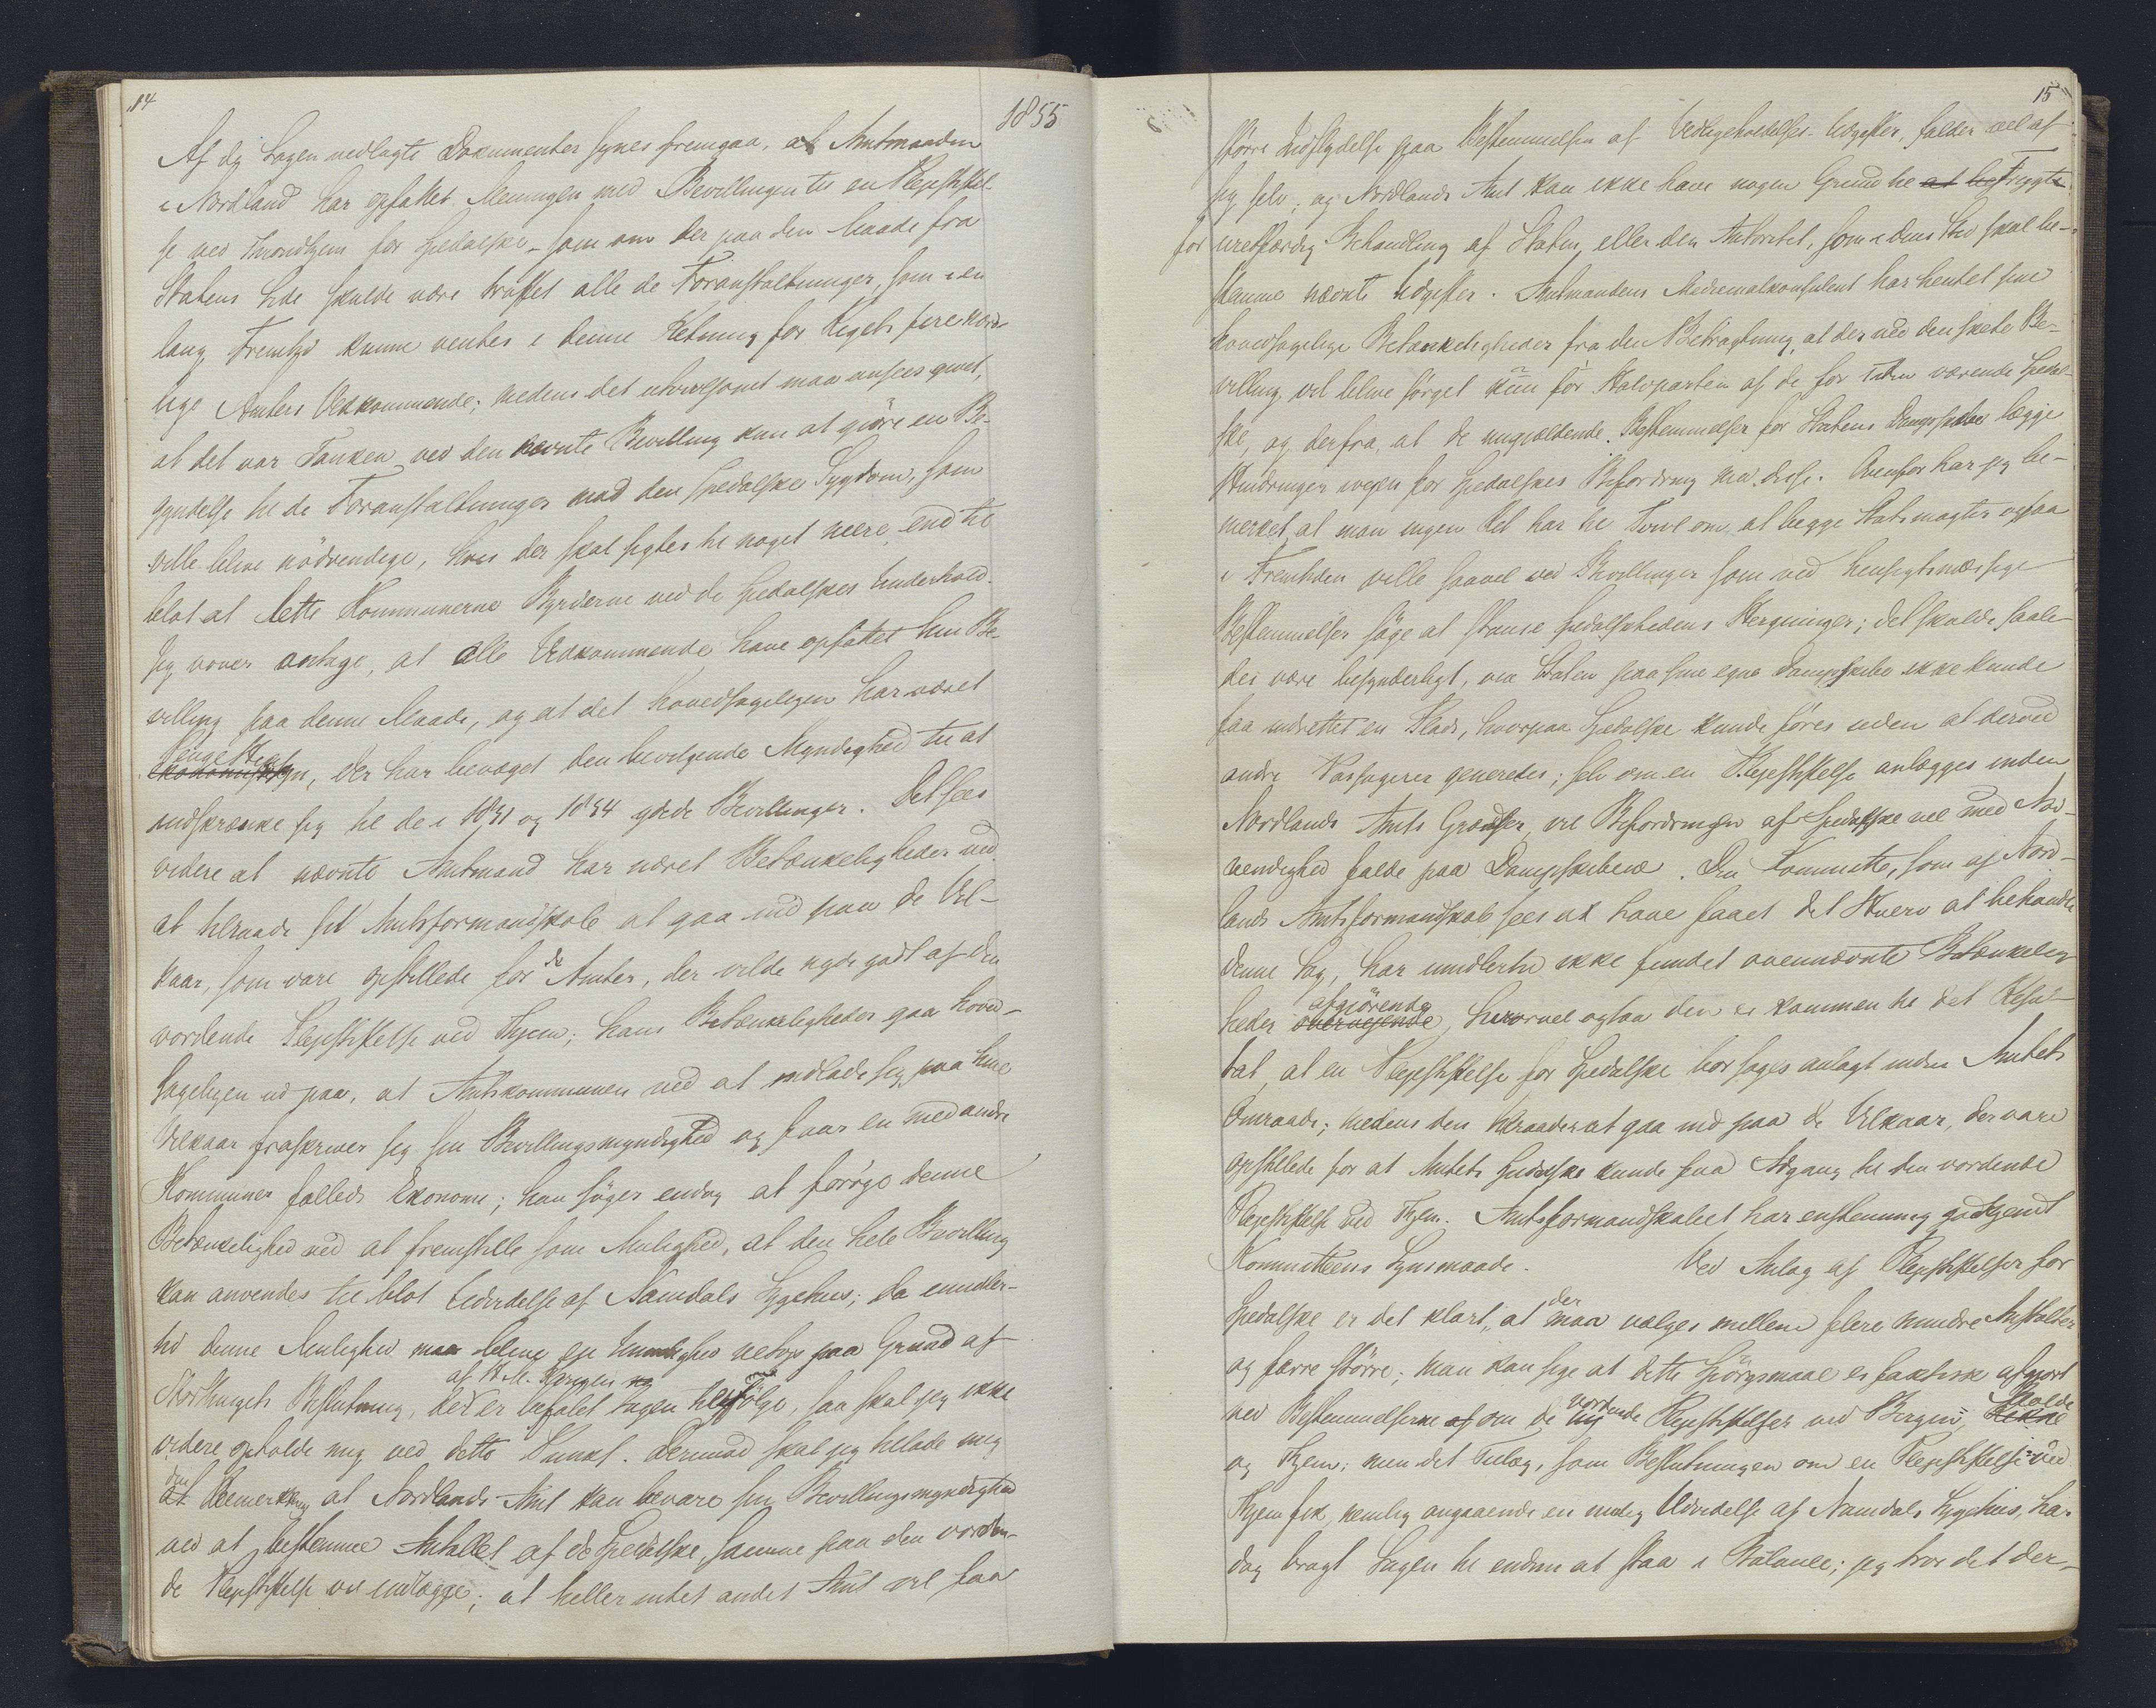 14
1855
Af de Sagen vedlagte Dokumenter synes fremgaa, at Amtmanden
i Nordland har opfattet Meningen med Bevillingen til en Plejestiftel-
se ved Throndhjem for Spedalske som om der paa den Maade fra
Statens Side skulde være truffet alle de Foranstaltninger, som i en
lang Fremtid kunne ventes i denne Retning for Rigets fire nord-
lige Amters Vedkommende; medens det utvivlsomt maa ansees givet,
at det var Tanken ved den nævnte Bevilling kun at gjöre en Be-
gyndelse til de Foranstaltninger mod den spedalske Sygdom, som
ville blive nödvendige, hvis der skal sigtes til noget mere end til
blot at lette Kommunerne Byrderne ved de Spedalskes Underhold.
Jeg vover antage, at alle Vedkommende have opfattet hin Be-
villing paa denne Maade, og at det hovedsageligen har været
Pengehensyn, der har bevæget den bevilgende Myndighed til at
indskrænke sig til de i 1851 og 1854 givede Bevillinger. Det sees
videre at nævnte Amtmand har næret Betænkeligheder ved
at tilraade sit Amtsformandskab at gaa ind paa de Vil-
kaar, som vare opstillede for de Amter, der vilde nyde godt af den
vordende Plejestiftelse ved Thjem; hans Betænkeligheder gaa hoved-
sageligen ud paa, at Amtskommunen ved at indlade sig paa hine
Vilkaar fraskriver sig sin Bevillingsmyndighed og faar en med andre
Kommuner fælleds Ekonomi; han söger endog at foröge denne
Betænkelighed ved at fremstille som Mulighed, at den hele Bevilling
kan anvendes til blot Udvidelse af Namdals Sygehus; da imidler-
tid denne Mulighed maa blive en Umulighed netop paa Grund af
af H. M. Kongen
Storthingets Beslutning, der er befalet tagen tilfölge, saa skal jeg ikke
videre opholde mig ved dette Punkt. Derimod skal jeg tillade mig
den Bemerkning at Nordlands Amt kan bevare sin Bevillingsmyndighed
ved at bestemme Antallet af de Spedalske, samme paa den vorden-
de Plejestiftelse vil indlægge; at heller intet andet Amt vil faa
15
större Indflydelse paa Bestemmelsen af Vedligeholdelses-Udgifter, falder vel af
sig selv; og Nordlands Amt kan ikke have nogen Grund til at be frygte
for uretfærdig Behandling af Staten, eller den Autoritet, som i dens Sted skal be-
stemme nævnte Udgifter. Amtmandens Medicinalkonsulent har hentet sine
hovedsagelige Betænkeligheder fra den Betragtning, at der ved den skete Be-
villing vil blive sörget kun for Halvparten af de for Tiden værende Spedal-
ske, og derfra, at de nugjældende Bestemmelser for Statens Dampskibe lægge
Hindringer ivejen for Spedalskes Befordring med disse. Ovenfor har jeg be-
merket at man ingen Ret har til Tvivl om, at begge Statsmagter ogsaa
i Fremtiden ville saavel ved Bevillinger som ved hensigtsmæssige
Bestemmelser söge at standse Spedalskhedens Hergninger; det skulde saale-
des være besynderligt, om Staten paa sine egne Dampskibe ikke kunde
faa indrettet en Plads, hvorpaa Spedalske kunde föres uden at derved
andre Passagerer generedes; selv om en Plejestiftelse anlægges inden
Nordlands Amts Grændser, vil Befordringen af Spedalske vel med Nöd-
vendighed falde paa Dampskibene. Den Committe, som af Nord-
lands Amtsformandskab sees at have faaet det Hverv at behandle
denne Sag, har imidlertid ikke fundet ovennævnte Betænkelig-
heder afgjörende, hvorvel ogsaa den er kommen til det Resul-
tat, at en Plejestiftelse for Spedalske bör söges anlagt inden Amtets
Omraade; medens den tilraader at gaa ind paa de Vilkaar, der vare
opstillede for at Amtets Spedalske kunde faa Adgang til den vordende
Plejestiftelse ved Thjem. Amtsformandskabet har enstemmig godkjendt
Kommitteens Synsmaade. Ved Anlæg af Plejestiftelser for
Spedalske er det klart, at der maa vælges mellem flere mindre Anstalter
og færre större; man kan sige at dette Spörgsmaal er faktisk afgjort
ved Bestemmelserne om de vordende Plejestiftelser ved Bergen, Molde
og Thjem; men det Tillæg, som Beslutningen om en Plejestiftelse ved
Thjem fik, nemlig angaaende en mulig Udvidelse af Namdals Sygehus, har
dog bragt Sagen til endnu at staa i Balance; jeg tror det der-